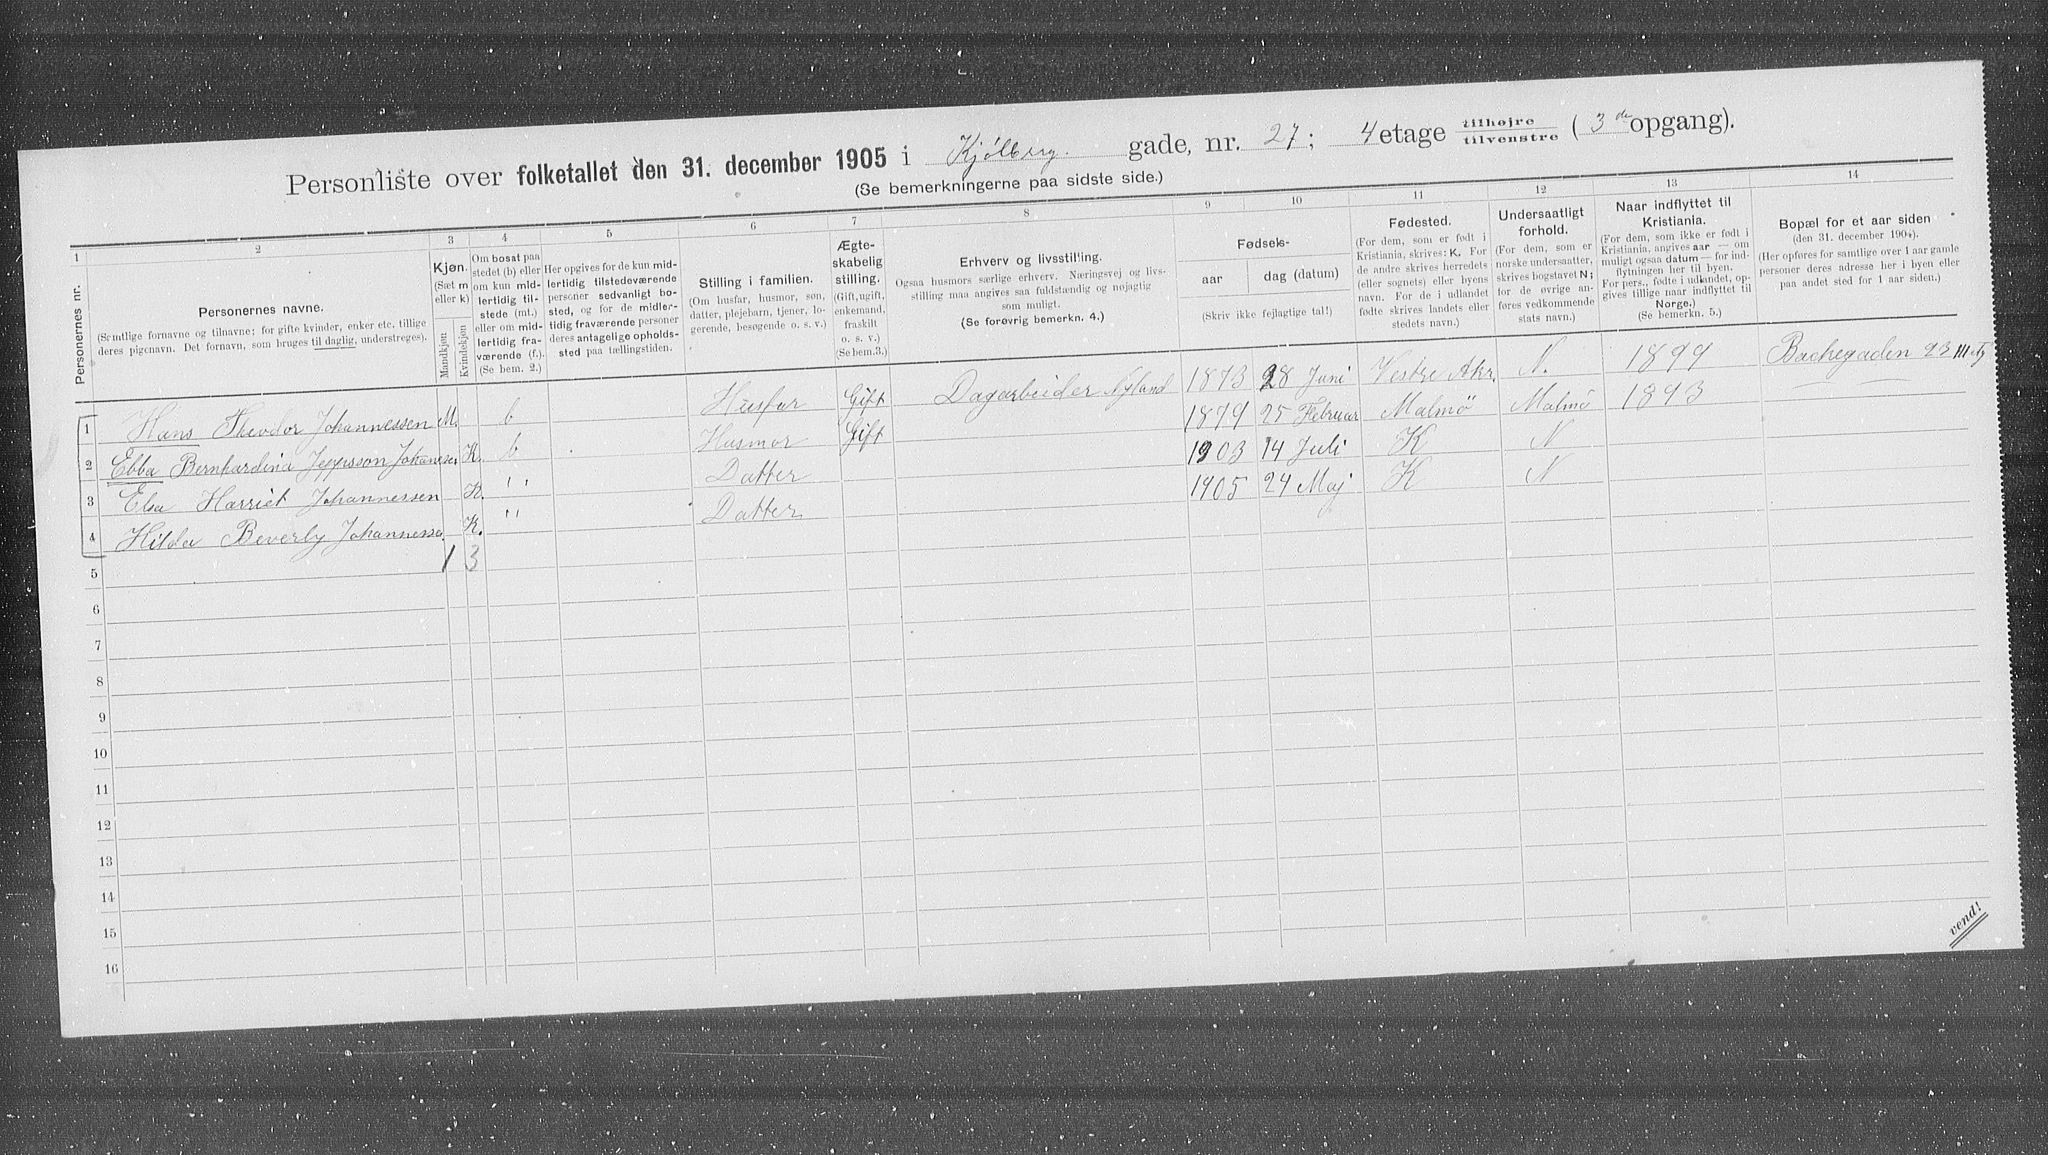 Personliste over folketallet den 31. december 1905 i Kjølberg. gade, nr. 27; 4 etage tilhøjre / tilvenstre (3 de opgang).
(Se bemerkningerne paa sidste side.)
1 2 3 4 5 6 7 8 9 10 11 12 13 14
Personernes nr.
Personernes navne.
(Samtlige fornavne og tilnavne; for gifte kvinder, enker etc. tillige
deres pigenavn. Det fornavn, som bruges til daglig, understreges).
Kjøn.
(Sæt m
eller k)
Mandkjøn
Kvindekjøn
Om bosat paa
stedet (b) eller
om kun mid-
lertidig til-
stede (mt.)
eller om mid-
lertidig fra-
værende (f.).
(Se bem. 2.)
Her opgives for de kun mid-
lertidig tilstedeværende
personer sedvanligt bo-
sted, og for de midler-
tidig fraværende personer
deres antagelige opholds-
sted paa tællingstiden.
Stilling i familien.
(Om husfar, husmor, søn,
datter, plejebarn, tjener, lo-
gerende, besøgende o. s. v.)
Ægte-
skabelig
stilling.
(Gift, ugift,
enkemand,
fraskilt
o. s. v.)
(Se bem.3.)
Erhverv og livsstilling.
Ogsaa husmors særlige erhverv. Næringsvej og livs-
stilling maa angives saa fuldstændig og nøjagtig
som muligt.
(Se forøvrig bemerkn. 4.)
Fødsels-
aar
dag (datum)
(Skriv ikke fejlagtige tal!)
Fødested.
(For dem, som er født i
Kristiania, skrives: K. For
de andre skrives herredets
(eller sognets) eller byens
navn. For de i udlandet
fødte skrives landets eller
stedets navn.)
Undersaatligt
forhold.
(For dem, som er
norske undersaatter,
skrives bogstavet N;
for de øvrige an-
føres vedkommende
stats navn.)
Naar indflyttet til
Kristiania.
(For dem, som ikke er født i
Kristiania, angives aar — om
muligt ogsaa datum — for ind-
flytningen her til byen.
For pers., fødte i udlandet, op-
gives tillige naar indflyttet til
Norge.)
(Se bemerkn. 5.)
Bopæl for et aar siden
(den 31. december 1904).
(Her opføres for samtlige over 1 aar gamle
personer deres adresse her i byen eller
paa andet sted for 1 aar siden.)
1 Hans Theodor Johannessen M. b Husfar Gift Dagarbeider Nyland 1873 28 Juni Vestre Akr. N. 1899 Bachegaden 23 III
2 Ebba Bernhardina Jeppsson Johannesen K. b Husmor Gift 1879 25 Februar Malmö Malmö 1893
3 Elsa Harriet Johannessen K. " Datter 1903 14 Juli K N
4 Hilda Beverly Johannessen K. " Datter. 1905 24 Maj K N
5 1 3
6
7
8
9
10
11
12
13
14
15
16
vend!